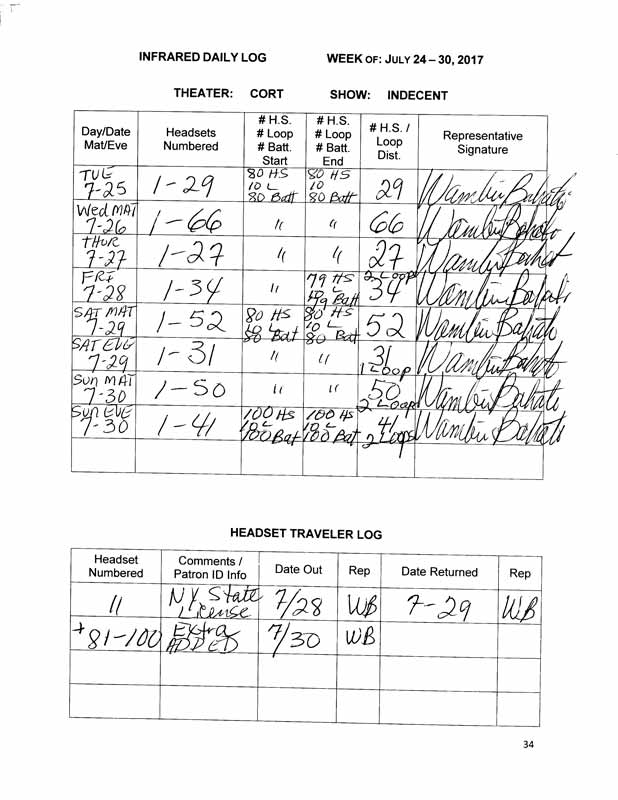 INFRARED DAILY LOG WEEK OF: JULY 24 – 30, 2017
THEATER: CORT SHOW: INDECENT
Day/Date Mat/Eve Headsets Numbered # H.S. # Loop # Batt. Start # H.S. # Loop # Batt. End # H.S. / Loop Dist. Representative Signature
TUE 7-25 1-29 80 HS 10 L 80 Batt 80 HS 10 80 Batt 29 Wambui Bahati
Wed MAT 7-26 1-66 " " 66 Wambui Bahati
THUR 7-27 1-27 " " 27 2 Loop Wambui Bahati
FRI 7-28 1-34 " 79 HS 10 L 79 Batt 34 Wambui Bahati
SAT MAT 7-29 1-52 80 HS 10 L 80 Bat 80 HS 10 L 80 Bat 52 Wambui Bahati
SAT EVE 7-29 1-31 " " 31 1 Loop Wambui Bahati
Sun MAT 7-30 1-50 " " 50 2 Loop Wambui Bahati
Sun EVE 7-30 1-41 100 HS 10 L 100 Bat 100 HS 10 L 100 Bat 41 2 Loops Wambui Bahati
HEADSET TRAVELER LOG
Headset Numbered Comments / Patron ID Info Date Out Rep Date Returned Rep
11 NY State License 7/28 WB 7-29 WB
+81-100 Extra ADDED 7/30 WB
34